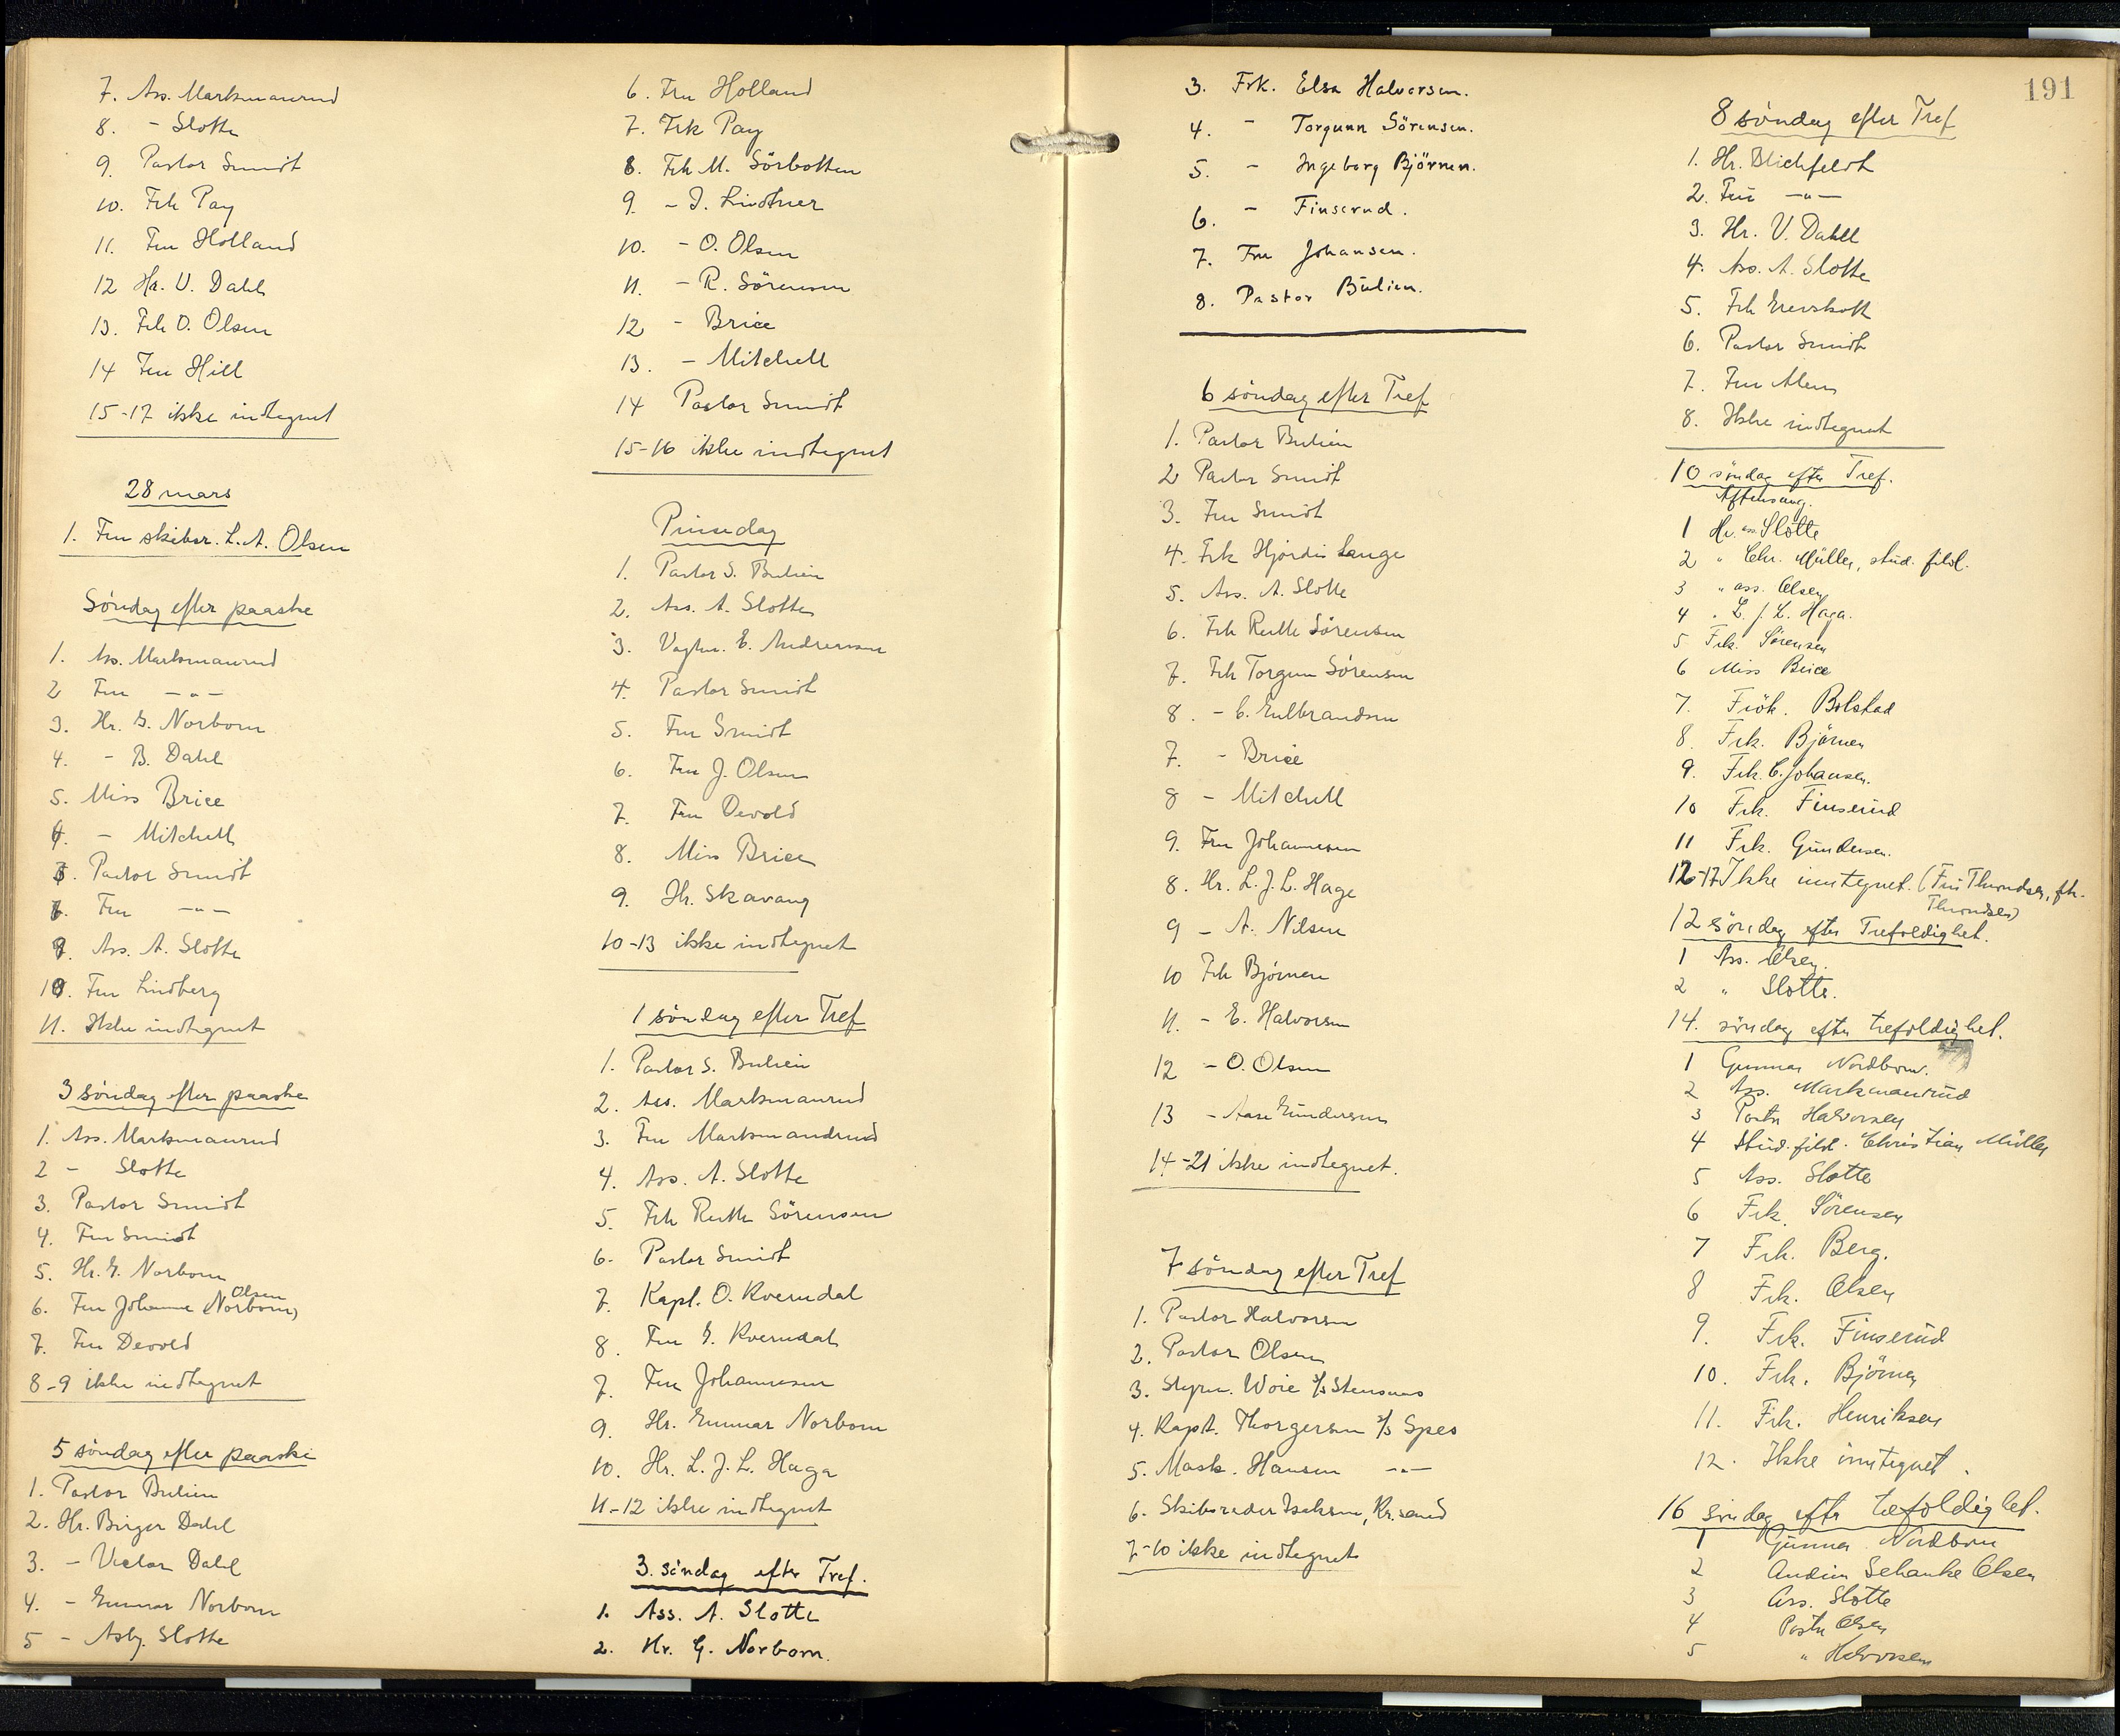 7. Ass. Markmanrud
8. - Slotte
9. Pastor Smidt
10. Frk Pay
11. Fru Holland
12 Hr. V. Dahl
13. Frk O. Olsen
14 Fru Hill
15-17 ikke indtegnet
28 mars
1. Fru skibsr. L. A. Olsen
Søndag efter paaske
1. Ass. Markmanrud
2 Fru -"-
3. Hr. G. Norbom
4. - B. Dahl
5. Miss Brice
6. - Mitchell
7. Pastor Smidt
8. Fru -"-
9. Ass. A. Slotte
10. Fru Lindberg
11. Ikke indtegnet
3 søndag efter paaske
1. Ass. Markmanrud
2 - Slotte
3. Pastor Smidt
4. Fru Smidt
5. Hr. G. Norbom
Olsen
6. Fru Johanne (Norbom)
7. Fru Devold
8-9 ikke indtegnet
5 søndag efter paaske
1. Pastor Bulien
2. Hr. Birger Dahl
3. - Victor Dahl
4. - Gunnar Norbom
5 - Asbj. Slotte
6. Fru Holland
7. Frk Pay
8. Frk M. Sörbotten
9. - I. Lindtner
10. - O. Olsen
11. - R. Sörensen
12 - Brice
13. - Mitchell
14 Pastor Smidt
15-16 ikke indtegnet
Pinsedag
1. Pastor S. Bulien
2. Ass. A. Slotte
3. E. Andreassen
4. Pastor Smidt
5. Fru Smidt
6. Fru J. Olsen
7. Fru Devold
8. Miss Brice
9. Hr. Skavang
10-13 ikke indtegnet
1 søndag efter Tref
1. Pastor S. Bulien
2. Ass. Markmanrud
3. Fru Markmandrud
4. Ass. A. Slotte
5. Frk Ruth Sörensen
6. Pastor Smidt
7. Kapt. O. Kverndal
8. Fru G. Kverndal
7. Fru Johannesen
9. Hr. Gunnar Norbom
10. Hr. L. J. L. Haga
11-12 ikke indtegnet
3. söndag efter Tref.
1. Ass. A. Slotte
2. Hr. G. Norbom.
3. Frk. Elsa Halvorsen.
4. - Torgunn Sörensen.
5. - Ingeborg Björnen.
6. - Finserud.
7. Fru Johansen.
8. Pastor Bulien.
6 söndag efter Tref
1. Pastor Bulien
2 Pastor Smidt
3. Fru Smidt
4. Frk Hjördis Lange
5. Ass. A. Slotte
6. Frk Ruth Sörensen
7. Frk Torgun Sörensen
8. - C. Gulbrandsen
7. - Brice
8 - Mitchell
9. Fru Johannesen
8. Hr. L. J. L. Hage
9 - A. Nilsen
10 Frk Bjørnen
11. - E. Halvorsen
12 - O. Olsen
13 - Aase Gundersen
14-21 ikke indtegnet.
7 söndag efter Tref
1. Pastor Halvorsen
2. Pastor Olsen
3. Styrm. Woie s/s
4. Kapt. Thorgersen s/s Spes
5. Mask. Hansen -"-
6. Skibsreder Isaksen, Kr.sand
7-10 ikke indtegnet
191
8 søndag efter Tref
1. Hr. Blichfeldt
2. Fru -"-
3. Hr. V. Dahll
4. Ass. A. Slotte
5. Frk
6. Pastor Smidt
7. Fru
8. Ikke indtegnet
10 søndag efter Tref.
Aftensang.
1 Hr. ass. Slotte
2 " Chr. Müller, stud. filol.
3 " ass. Olsen
4 " L. J. L. Haga.
5 Frk. Sörensen
6 Miss Brice
7. Frök. Bolstad
8. Frk. Björnen
9. Frk. C. Johansen.
10 Frk. Finserud
11 Frk. Gundersen.
12-17 Ikke inntegnet. (Fru Throndsen, frk.
Throndsen)
12 søndag efter Trefoldighet.
1 Ass. Olsen.
2 " Slotte.
14. søndag efter trefoldighet.
1 Gunnar Nordbom.
2 Ass. Markmanrud
3 Pastor Halvorsen
4 Stud. filol. Christian Müller
5 Ass. Slotte
6 Frk. Sörensen
7 Frk. Berg.
8 Frk. Olsen
9. Frk. Finserud
10. Frk. Björnen
11. Frk. Henriksen
12. Ikke inntegnet.
16 søndag efter trefoldighet.
1 Gunnar Nordbom
2 Audun Schanke Olsen
3 Ass. Slotte
4 Pastor Olsen
5 " Halvorsen